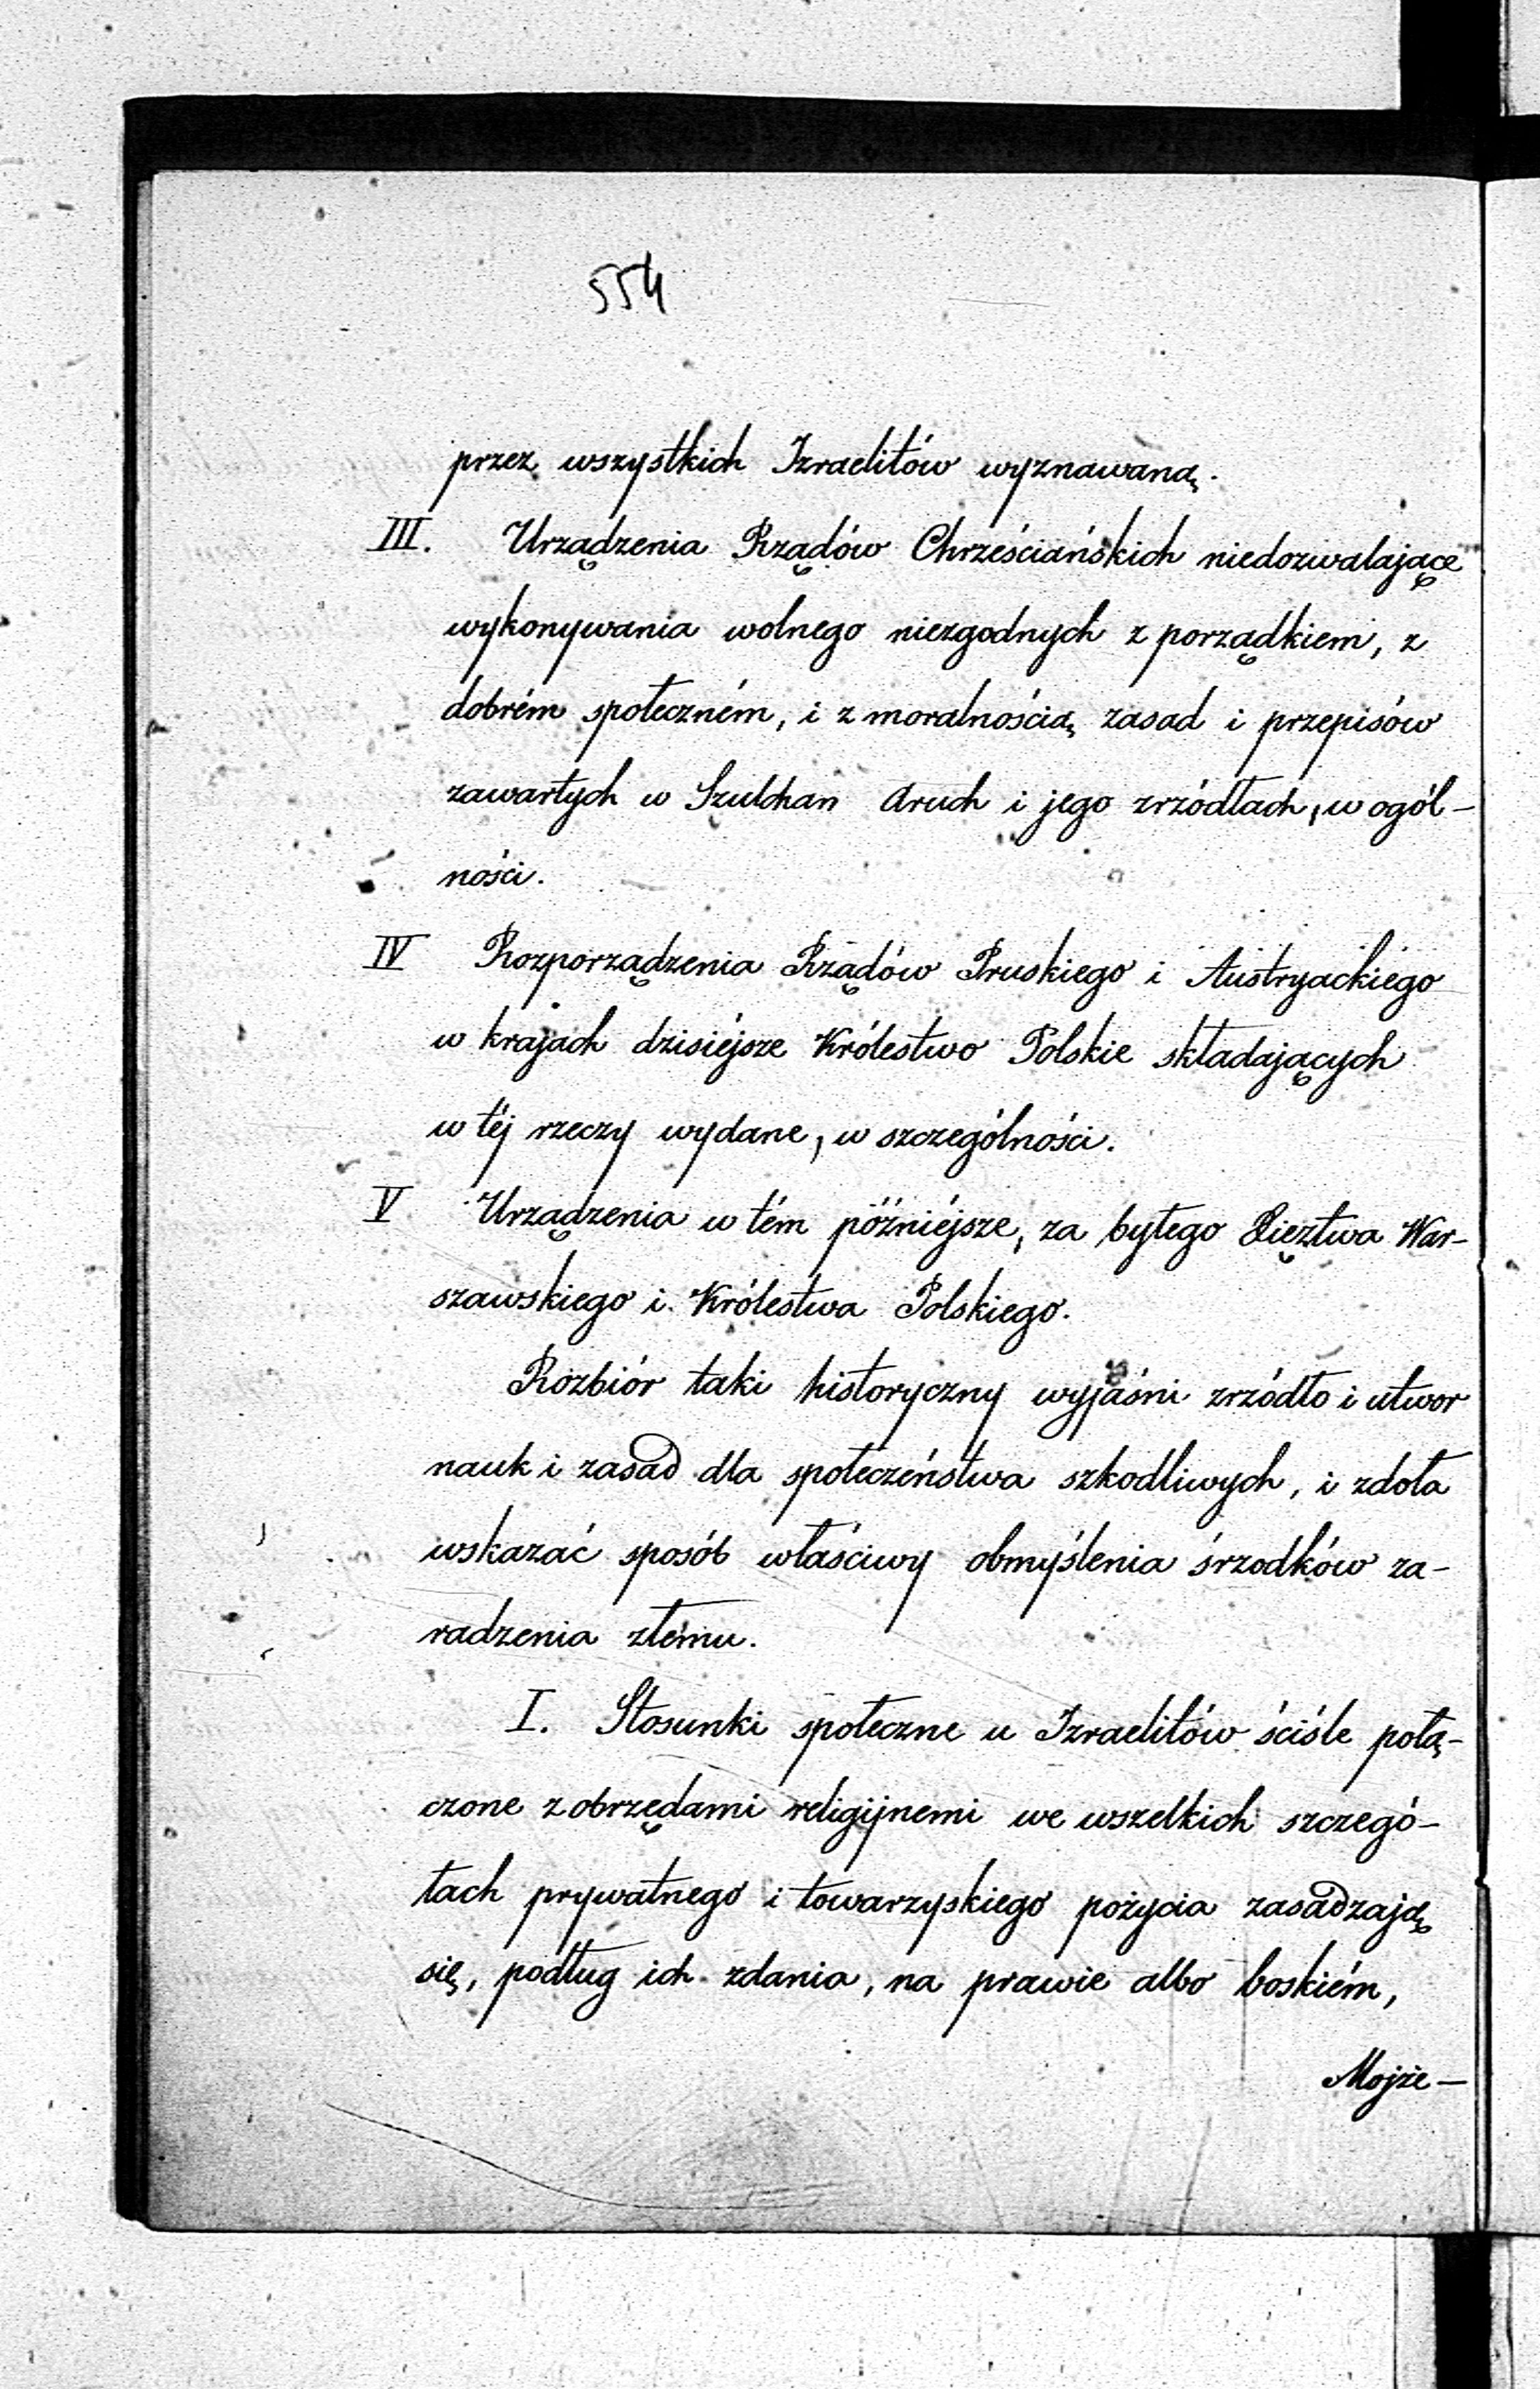 554
przez wszystkich Izraelitów wyznawaną.
III. Urządzenia Rządów Chrześciańskich niedozwalające
wykonywania wolnego niezgodnych z porządkiem, z
dobrém społeczném, i z moralnością zasad i przepisów
zawartych w Szulchan Aruch i jego zrzódłach, w ogól-
ności.
IV Rozporządzenia Rządów Pruskiego i Austryackiego
w krajach dzisiéjsze Królestwo Polskie składających
w téj rzeczy wydane, w szczególności.
V Urządzenia w tém późniéjsze, za byłego Xięztwa War-
szawskiego i Królestwa Polskiego.
Rozbiór taki historyczny wyjaśni zrzódło i utwor
nauk i zasad dla społeczeństwa szkodliwych, i zdoła
wskazać sposób właściwy obmyślenia śrzodków za-
radzenia złemu.
I. Stosunki społeczne u Izraelitów ściśle połą-
czone z obrzędami religijnemi we wszelkich szczegó-
łach prywatnego i towarzyskiego pożycia zasadzają
się, podług ich zdania, na prawie albo boskiém,
Mojże-